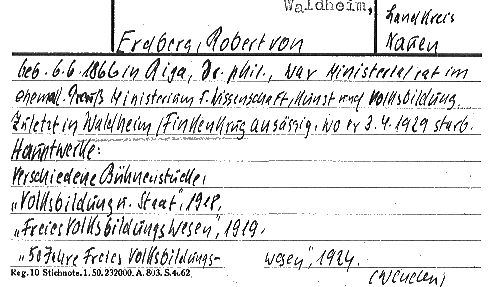 Waldheim,
Landkreis
Erdberg, Robert von
Nauen
geb. 6.6.1866 in Riga, Dr. phil., war Ministerialrat im
ehemal. Preuß Ministerium f. Wissenschaft, Kunst und Volksbildung.
Zuletzt in Waldheim/Finkenkrug ansässig, wo er 3.4.1929 starb.
Hauptwerke:
Verschiedene Bühnenstücke,
„Volksbildung u. Staat", 1918,
„Freies Volksbildungswesen", 1919,
„50 Jahre Freies Volksbildungs- wesen", 1924.
Reg. 10 Stichnote. 1. 50. 232000. A. 803. S. 4. 62